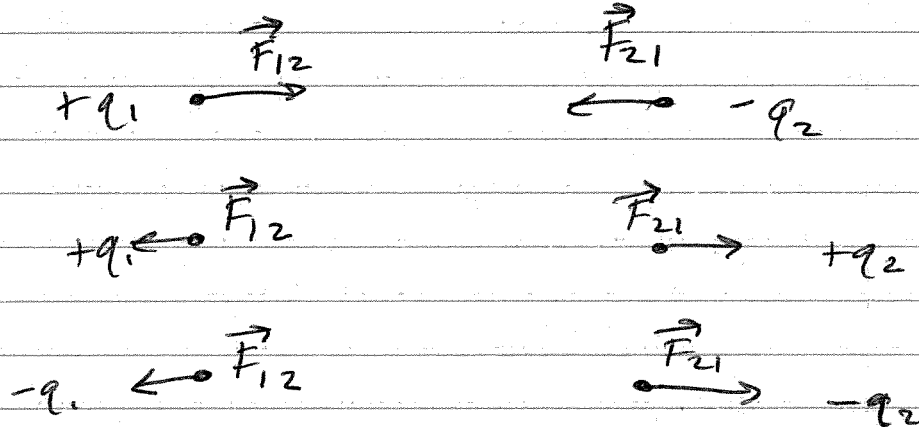 +q₁ F⃗₁₂ F⃗₂₁ -q₂
+q₁ F⃗₁₂ F⃗₂₁ +q₂
-q₁ F⃗₁₂ F⃗₂₁ -q₂